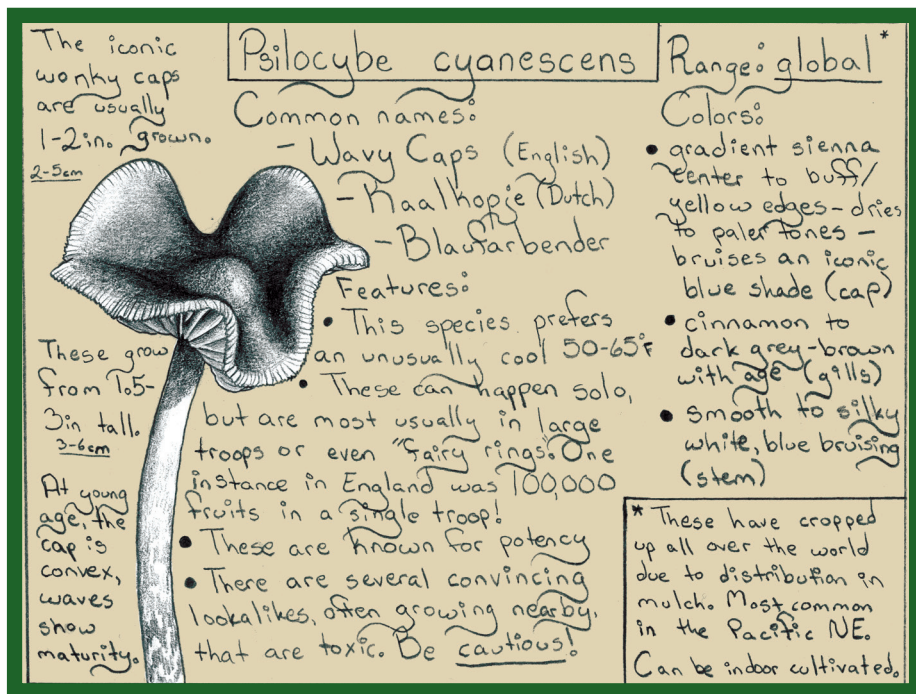 The iconic
wonky caps
are usually
1-2in. grown.
2-5cm
Psilocybe cyanescens
Common names:
- Wavy Caps (English)
- Kaalkopje (Dutch)
- Blaufarbender
Features:
• This species prefers
an unusually cool 50-65°F
• These can happen solo,
but are most usually in large
troops or even "fairy rings". One
instance in England was 100,000
fruits in a single troop!
• These are known for potency
• There are several convincing
lookalikes, often growing nearby,
that are toxic. Be cautious!
These grow
from 1.5-
3in tall.
3-6cm
At young
age, the
cap is
convex,
waves
show
maturity.
Range: global*
Colors:
• gradient sienna
center to buff/
yellow edges - dries
to paler tones -
bruises an iconic
blue shade (cap)
• cinnamon to
dark grey-brown
with age (gills)
• smooth to silky
white, blue bruising
(stem)
* These have cropped
up all over the world
due to distribution in
mulch. Most common
in the Pacific NE.
Can be indoor cultivated.